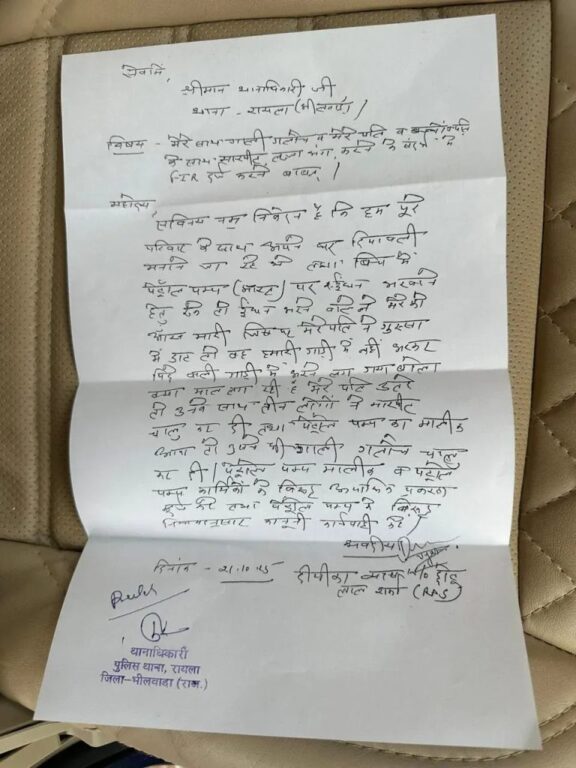 सेवामें,
श्रीमान थानाधिकारी जी
थाना - रायला (भीलवाड़ा)
विषय - मेरे साथ गाली गलौच व मेरे पति व
के साथ मारपीट तथा भंग करने के संबंध में
FIR दर्ज करने बाबत् ।
महोदय,
सविनय नम्र निवेदन है कि हम पूरे
परिवार के साथ अपने घर दिपावली
मनाने जा रहे थे तथा बिच में
पेट्रोल पम्प पर ईंधन भरवाने
हेतु रुके तो ईंधन भरने वाले ने मेरे को
आँख मारी जिस पर मेरे पति ने गुस्सा
में डाट तो वह हमारी गाड़ी में नहीं भरकर
पिछे वाली गाड़ी में भरने लग गया बोला
क्या माल लग रही है मेरे पति उतरे
तो उनके साथ तीन लोगों ने मारपीट
चालु कर दी तथा पेट्रोल पम्प का मालीक
आया तो उसने भी गाली गलौच चालू
कर दी । पेट्रोल पम्प मालीक व पेट्रोल
पम्प कार्मिकों के विरुद्ध आपराधिक प्रकरण
दर्ज करे तथा पेट्रोल पम्प के विरुद्ध
नियमानुसार कानूनी कार्यवाही करे
भवदीय
दिनांक - 21.10.25
दीपीका व्यास W/o छोटू
लाल शर्मा (RAS)
थानाधिकारी
पुलिस थाना, रायला
जिला-भीलवाडा (राज.)